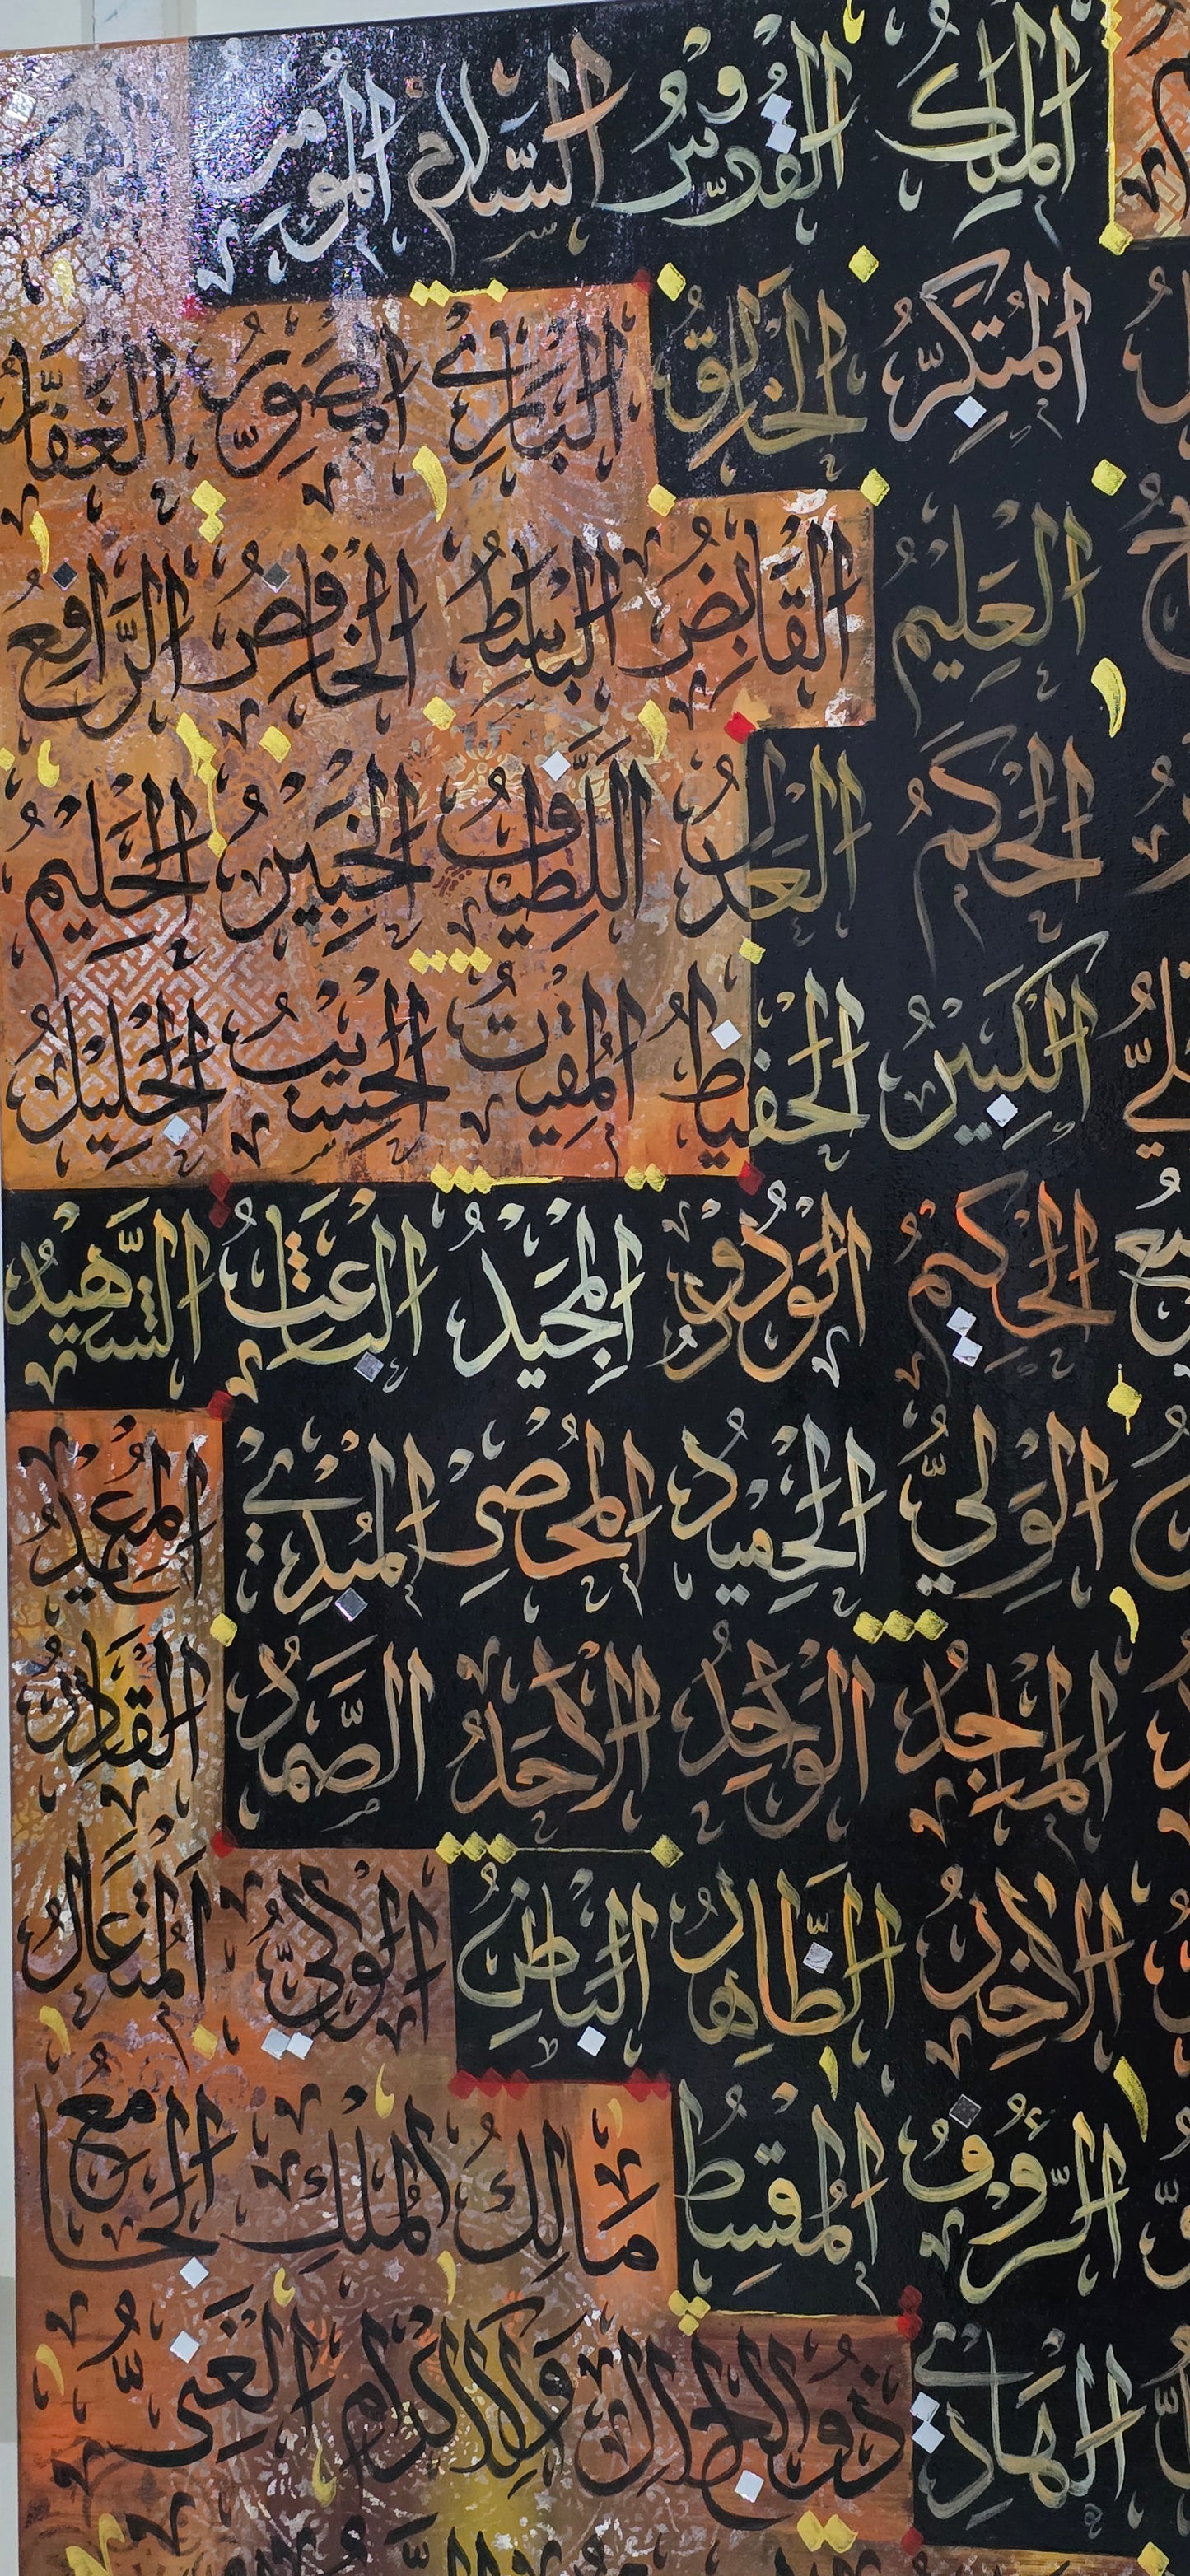 المَلِكُ القُدُّوسُ السَّلَامُ المُؤمِنُ
المُتَكَبِّرُ الخَالِقُ البَارِئُ المُصَوِّرُ الغَفَّارُ
العَلِيمُ القَابِضُ البَاسِطُ الخَافِضُ الرَّافِعُ
الحَكَمُ العَدْلُ اللَّطِيفُ الخَبِيْرُ الحَلِيمُ
الكَبِيْرُ الحَفِيظُ المُقِيتُ الحَسِيْبُ الجَلِيْلُ
الحَكِيمُ الوَدُوْدُ المَجِيْدُ البَاعِثُ الشَّهِيْدُ
الوَلِيُّ الحَمِيْدُ المُحْصِىْ المُبْدِئُ المُعِيْدُ
المَاجِدُ الوَاحِدُ الاَحَدُ الصَّمَدُ القَادِرُ
الاٰخِرُ الظَّاهِرُ البَاطِنُ الوَالِيُّ المُتَعَالُ
الرَّؤُفُ المُقْسِطُ مَالِكُ المُلْكِ الجَامِعُ
الهَادِيْ ذُو الجَلَالِ وَالاِكْرَامِ الغَنِىُّ